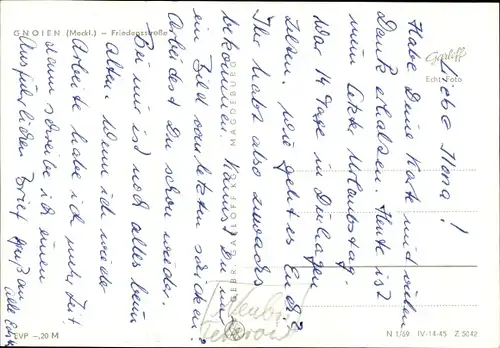 GNOIEN (Meckl.) – Friedensstraße
Garloff
Echt Foto
Liebe Ilona!
Habe Deine Karte mit vielen
Dank erhalten. Heute ist
mein letzter Urlaubstag.
War 14 Tage in
Zelten. Wie geht es Euch?
Ihr habt also zuwachs
bekommen. Kannst Du mir
ein Bild vom letzten schicken?
Arbeitest Du schon wieder.
Bei mir ist noch alles beim
Alten. Wenn ich wieder
Arbeite habe ich mehr Zeit
dann schreibe ich einen
Ausführlichen Brief. Gruß an
alle
GEBR. GARLOFF KG. MAGDEBURG
Neubi
Teterow
EVP –,20 M
N 1/69 IV-14-45 Z 5042